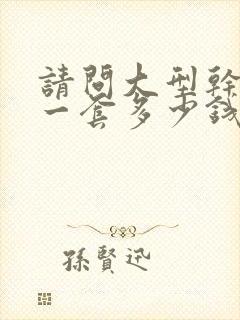 請問大型幹
一套多少錢
孫賢迅